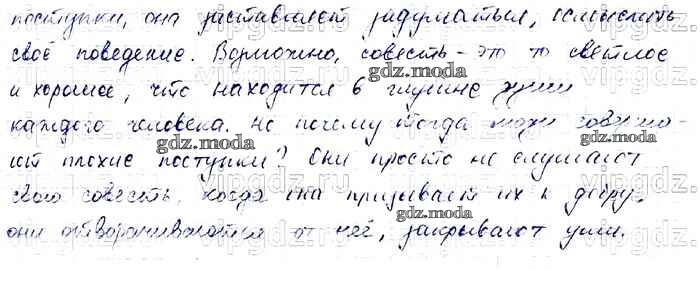 поступки, она заставляет задуматься, осмыслить
своё поведение. Возможно, совесть - это то светлое
и хорошее, что находится в глубине души
каждого человека. Но почему тогда люди соверша-
ют плохие поступки? Они просто не слушают
свою совесть, когда она призывает их к добру,
они отворачиваются от неё, закрывают уши.
gdz.moda
gdz.moda
gdz.moda
gdz.moda
gdz.moda
vipgdz